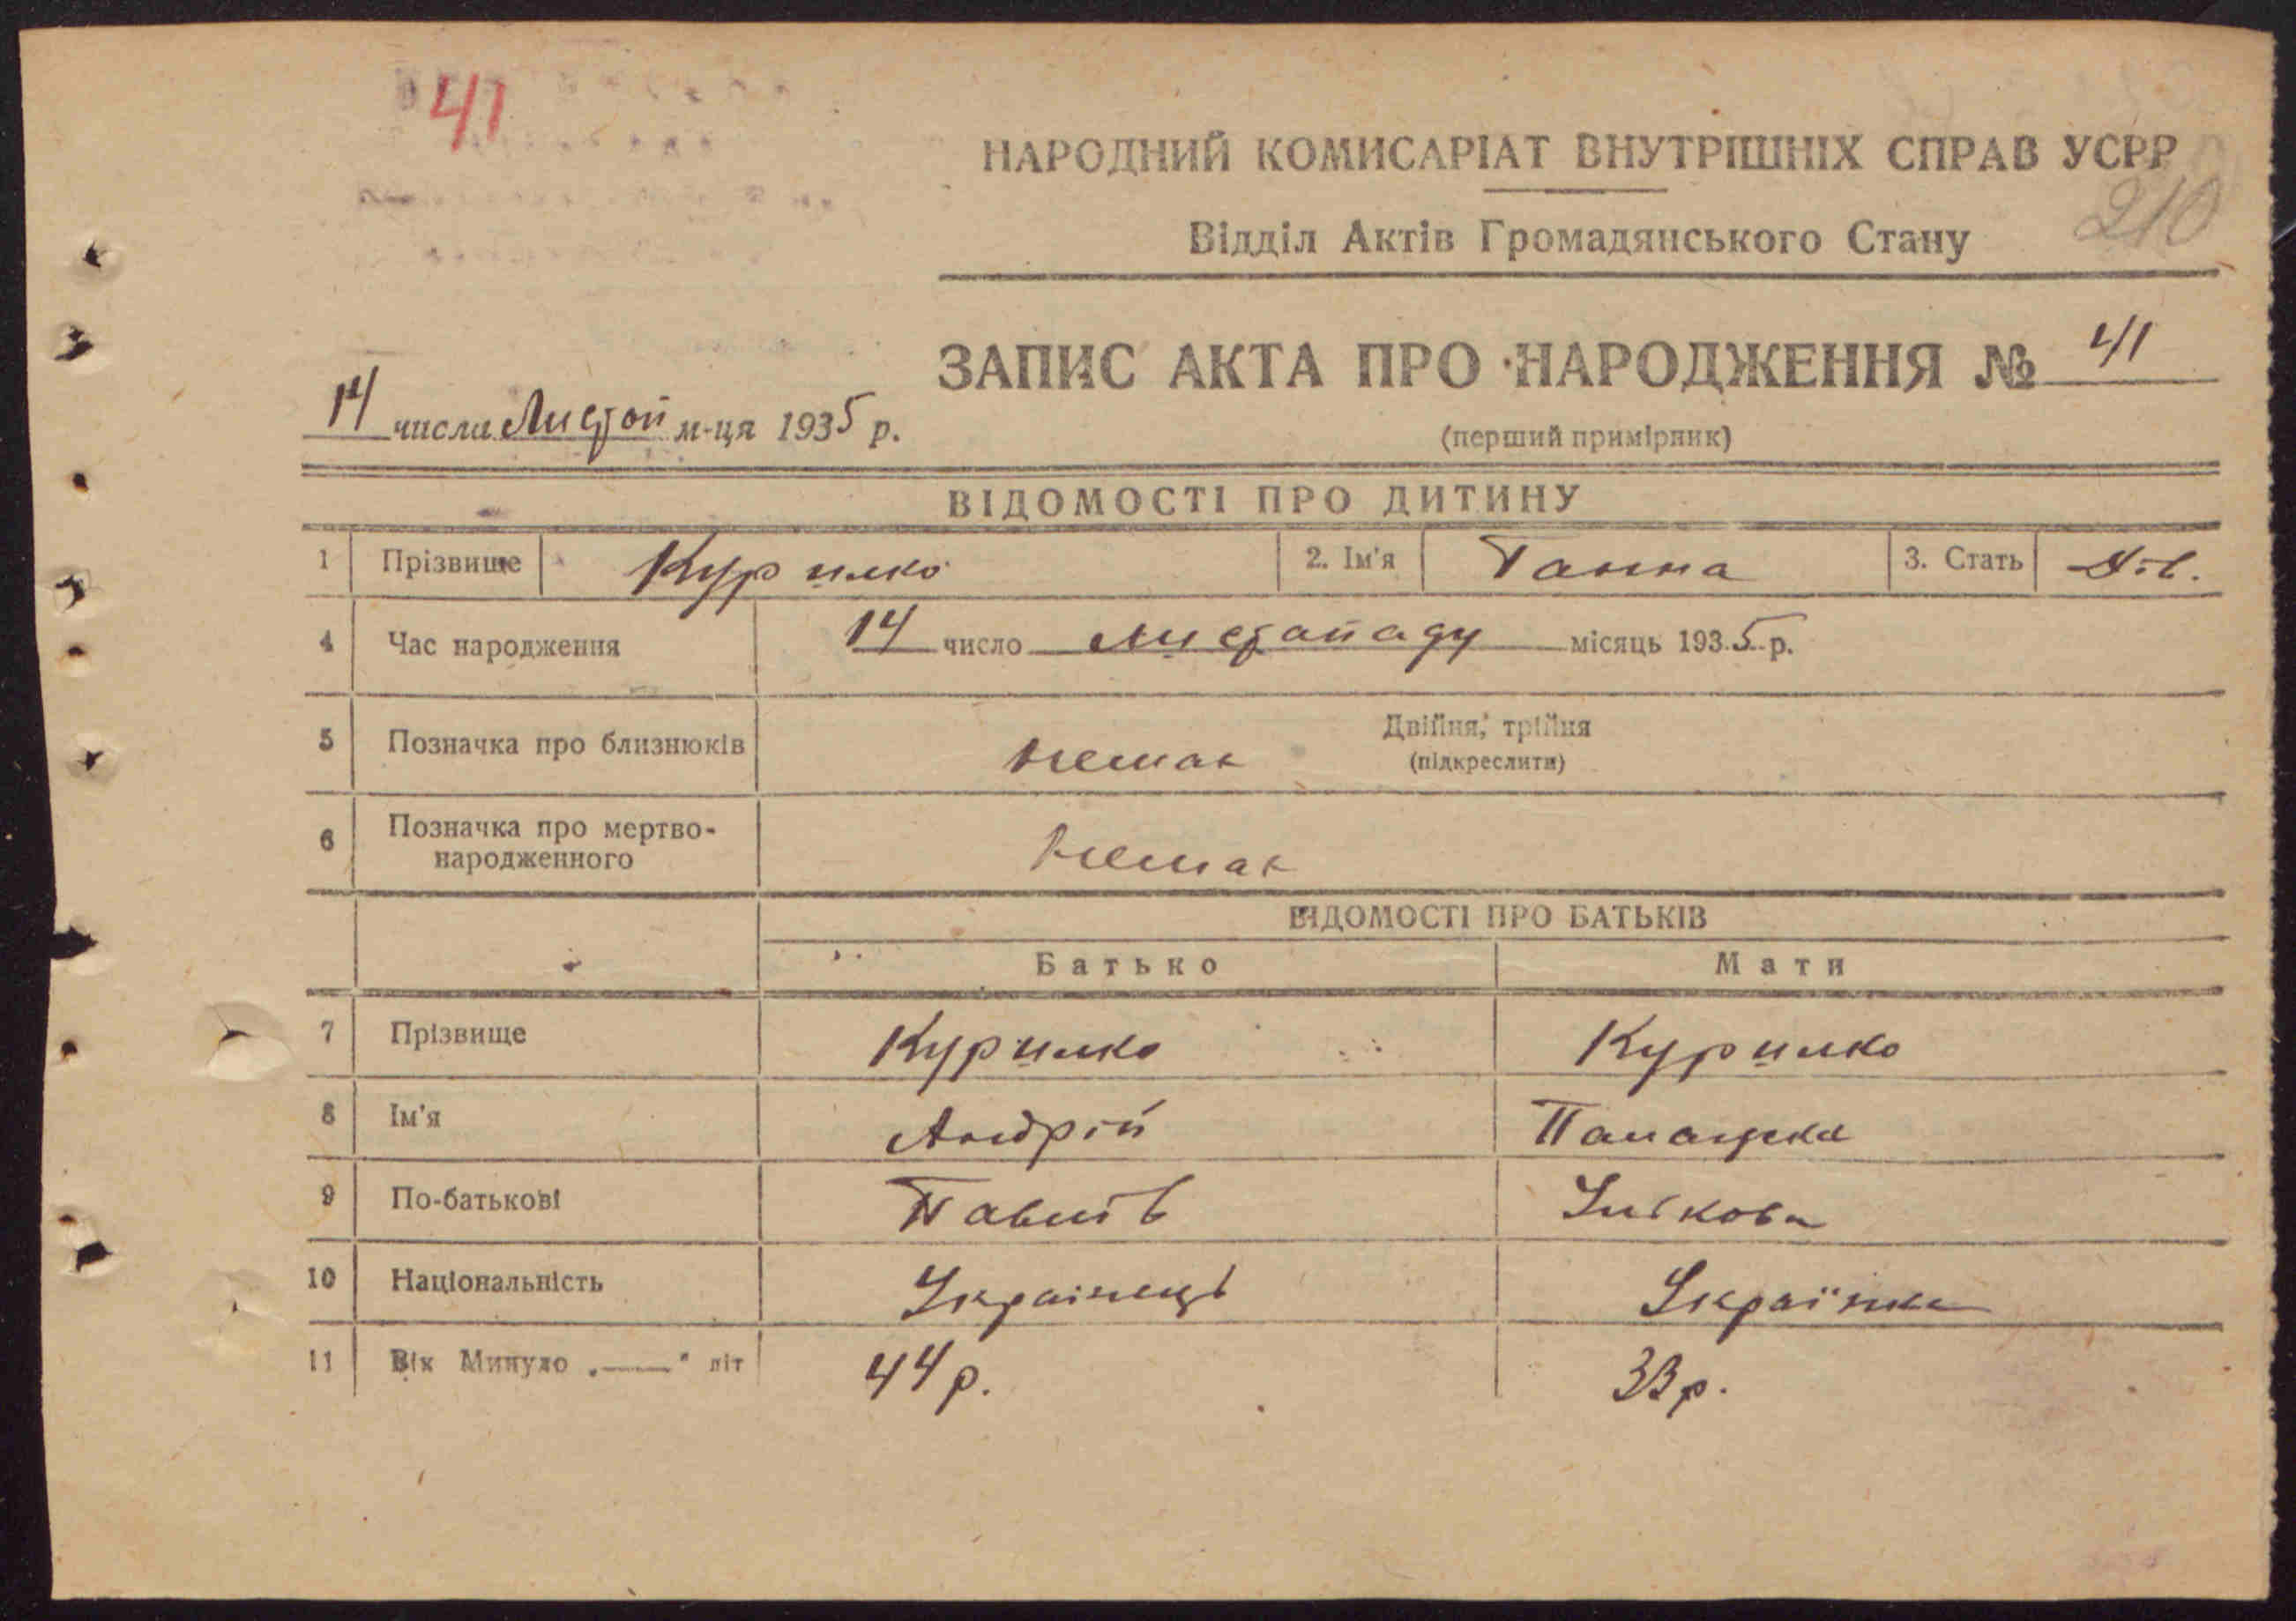 41
НАРОДНИЙ КОМИСАРІАТ ВНУТРІШНІХ СПРАВ УСРР
210
Відділ Актів Громадянського Стану
ЗАПИС АКТА ПРО НАРОДЖЕННЯ № 41
14 числа Листоп м-ця 1935 р.
(перший примірник)
ВІДОМОСТІ ПРО ДИТИНУ
1 Прізвище Курилко 2. Ім'я Ганна 3. Стать Дів.
4 Час народження 14 число листопаду місяць 1935 р.
5 Позначка про близнюків немає Двійня, трійня
(підкреслити)
6 Позначка про мертво-
народженного немає
ВІДОМОСТІ ПРО БАТЬКІВ
Батько Мати
7 Прізвище Курилко Курилко
8 Ім'я Андрій
9 По-батькові Павлів
10 Національність Українець Українка
11 Вік Минуло „——" літ 44 р. 33 р.